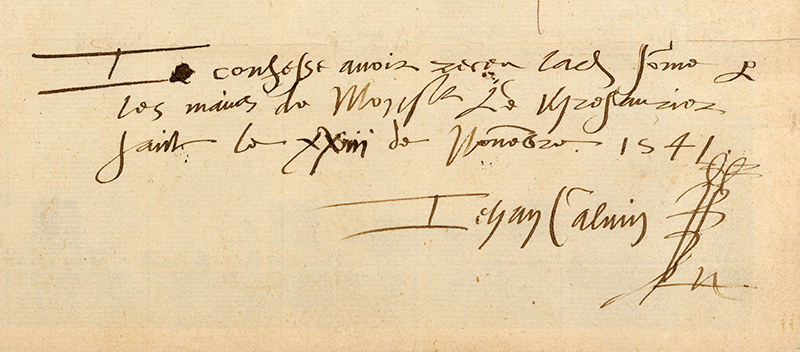 Je confesse avoir receu lad somme p
les mains de Monsr Le thresaurier
faict le xxiii de Novembre 1541.
Jehan Calvin